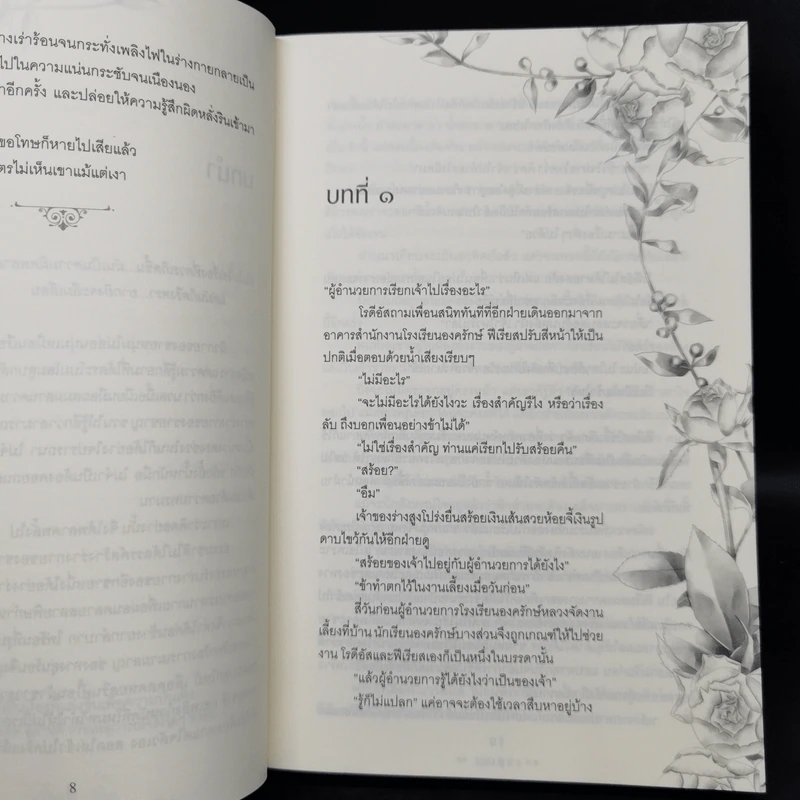 างเร่าร้อนจนกระทั่งเพลิงไฟในร่างกายกลายเป็น
ไปในความแน่นกระชับจนเนืองนอง
าอีกครั้ง และปล่อยให้ความรู้สึกผิดหลั่งรินเข้ามา
ขอโทษก็หายไปเสียแล้ว
ตรไม่เห็นเขาแม้แต่เงา
8
บทที่ ๑
“ผู้อำนวยการเรียกเจ้าไปเรื่องอะไร”
โรดีอัสถามเพื่อนสนิททันทีที่อีกฝ่ายเดินออกมาจาก
อาคารสำนักงานโรงเรียนองครักษ์ ฟีเรียสปรับสีหน้าให้เป็น
ปกติเมื่อตอบด้วยน้ำเสียงเรียบๆ
“ไม่มีอะไร”
“จะไม่มีอะไรได้ยังไงวะ เรื่องสำคัญรึไง หรือว่าเรื่อง
ลับ ถึงบอกเพื่อนอย่างข้าไม่ได้”
“ไม่ใช่เรื่องสำคัญ ท่านแค่เรียกไปรับสร้อยคืน”
“สร้อย?”
“อืม”
เจ้าของร่างสูงโปร่งยื่นสร้อยเงินเส้นสวยห้อยจี้เงินรูป
ดาบไขว้กันให้อีกฝ่ายดู
“สร้อยของเจ้าไปอยู่กับผู้อำนวยการได้ยังไง”
“ข้าทำตกไว้ในงานเลี้ยงเมื่อวันก่อน”
สี่วันก่อนผู้อำนวยการโรงเรียนองครักษ์หลวงจัดงาน
เลี้ยงที่บ้าน นักเรียนองครักษ์บางส่วนจึงถูกเกณฑ์ให้ไปช่วย
งาน โรดีอัสและฟีเรียสเองก็เป็นหนึ่งในบรรดานั้น
“แล้วผู้อำนวยการรู้ได้ยังไงว่าเป็นของเจ้า”
“รู้ก็ไม่แปลก” แค่อาจจะต้องใช้เวลาสืบหาอยู่บ้าง